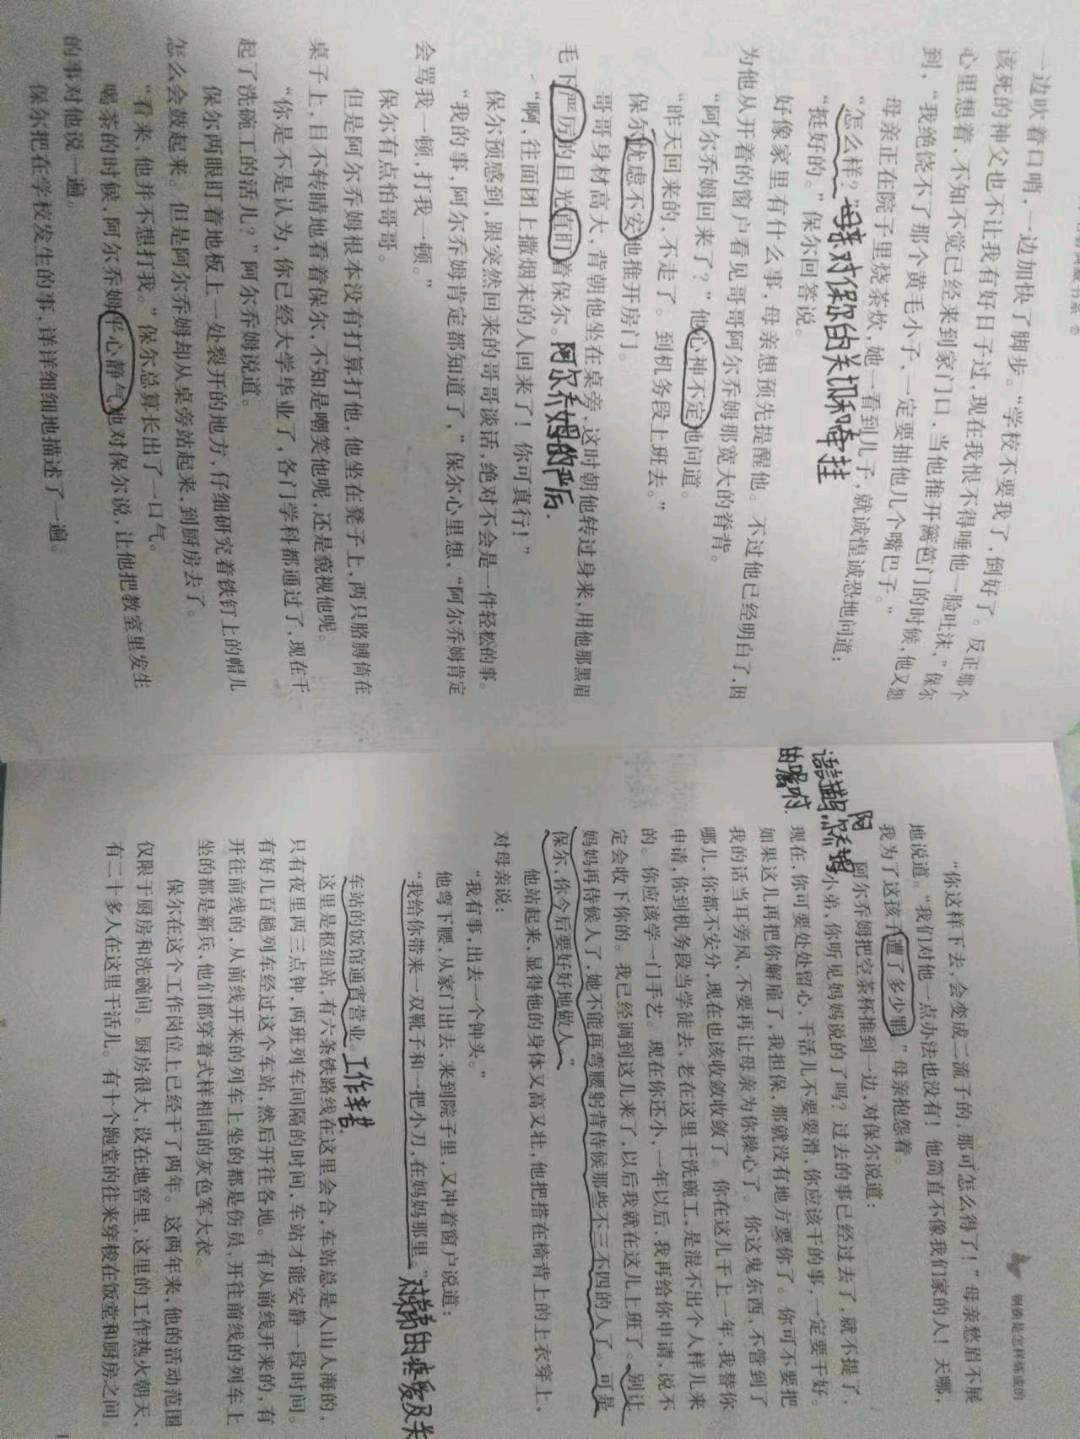 一边吹着口哨，一边加快了脚步。“学校不要我了，倒好了。反正那个
该死的神父也不让我有好日子过，现在我恨不得唾他一脸吐沫，”保尔
心里想着，不知不觉已经来到家门口，当他推开篱笆门的时候，他又想
到，“我绝饶不了那个黄毛小子，一定要抽他几个嘴巴子。”
母亲正在院子里烧茶炊，她一看到儿子，就诚惶诚恐地问道：
“怎么样？”母亲对保尔的关切和牵挂
“挺好的。”保尔回答说。
好像家里有什么事，母亲想预先提醒他。不过他已经明白了，因
为他从开着的窗户看见哥哥阿尔乔姆那宽大的脊背。
“阿尔乔姆回来了？”他心神不定地问道。
“昨天回来的，不走了。到机务段上班去。”
保尔忧虑不安地推开房门。
哥哥身材高大，背朝他坐在桌旁，这时朝他转过身来，用他那黑眉
毛下严厉的目光直盯着保尔。阿尔乔姆的严厉.
“啊，往面团上撒烟末的人回来了！你可真行！”
保尔预感到，跟突然回来的哥哥谈话，绝对不会是一件轻松的事。
“我的事，阿尔乔姆肯定都知道了，”保尔心里想，“阿尔乔姆肯定
会骂我一顿，打我一顿。”
保尔有点怕哥哥。
但是阿尔乔姆根本没有打算打他，他坐在凳子上，两只胳膊倚在
桌子上，目不转睛地看着保尔，不知是嘲笑他呢，还是藐视他呢。
“你是不是认为，你已经大学毕业了，各门学科都通过了，现在干
起了洗碗工的活儿？”阿尔乔姆说道。
保尔两眼盯着地板上一处裂开的地方，仔细研究着铁钉上的帽儿
怎么会鼓起来。但是阿尔乔姆却从桌旁站起来，到厨房去了。
“看来，他并不想打我。”保尔总算长出了一口气。
喝茶的时候，阿尔乔姆平心静气地对保尔说，让他把教室里发生
的事对他说一遍。
保尔把在学校发生的事，详详细细地描述了一遍。
钢铁是怎样炼成的
“你这样下去，会变成二流子的，那可怎么得了！”母亲愁眉不展
地说道。“我们对他一点办法也没有！他简直不像我们家的人！天哪，
我为了这孩子遭了多少罪！”母亲抱怨着。
阿尔乔姆把空茶杯推到一边，对保尔说道：
“小弟，你听见妈妈说的了吗？过去的事已经过去了，就不提了，
现在，你可要处处留心，干活儿不要耍滑，你应该干的事，一定要干好。
的嘱咐.
如果这儿再把你解雇了，我担保，那就没有地方要你了。你可不要把
我的话当耳旁风，不要再让母亲为你操心了。你这鬼东西，不管到了
哪儿，你都不安分，现在也该收敛收敛了。你在这儿干上一年，我替你
申请，你到机务段当学徒去，老在这里干洗碗工，是混不出个人样儿来
的。你应该学一门手艺。现在你还小，一年以后，我再给你申请，说不
定会收下你的。我已经调到这儿来了，以后我就在这儿上班了。别让
妈妈再侍候人了，她不能再弯腰躬背侍候那些不三不四的人了。可是
保尔，你今后要好好地做人。”
他站起来，显得他的身体又高又壮，他把搭在椅背上的上衣穿上，
对母亲说：
“我有事，出去一个钟头。”
他弯下腰，从家门出去，来到院子里，又冲着窗户说道：
“我给你带来一双靴子和一把小刀，在妈妈那里。”对弟弟的疼爱及关
车站的饭馆通宵营业。工作辛苦.
这里是枢纽站，有六条铁路线在这里会合，车站总是人山人海的，
只有夜里两三点钟，两班列车间隔的时间，车站才能安静一段时间。
有好几百趟列车经过这个车站，然后开往各地。有从前线开来的，有
开往前线的，从前线开来的列车上坐的都是伤员，开往前线的列车上
坐的都是新兵，他们都穿着式样相同的灰色军大衣。
保尔在这个工作岗位上已经干了两年。这两年来，他的活动范围
仅限于厨房和洗碗间。厨房很大，设在地窖里，这里的工作热火朝天，
有二十多人在这里干活儿。有十个跑堂的往来穿梭在饭堂和厨房之间。